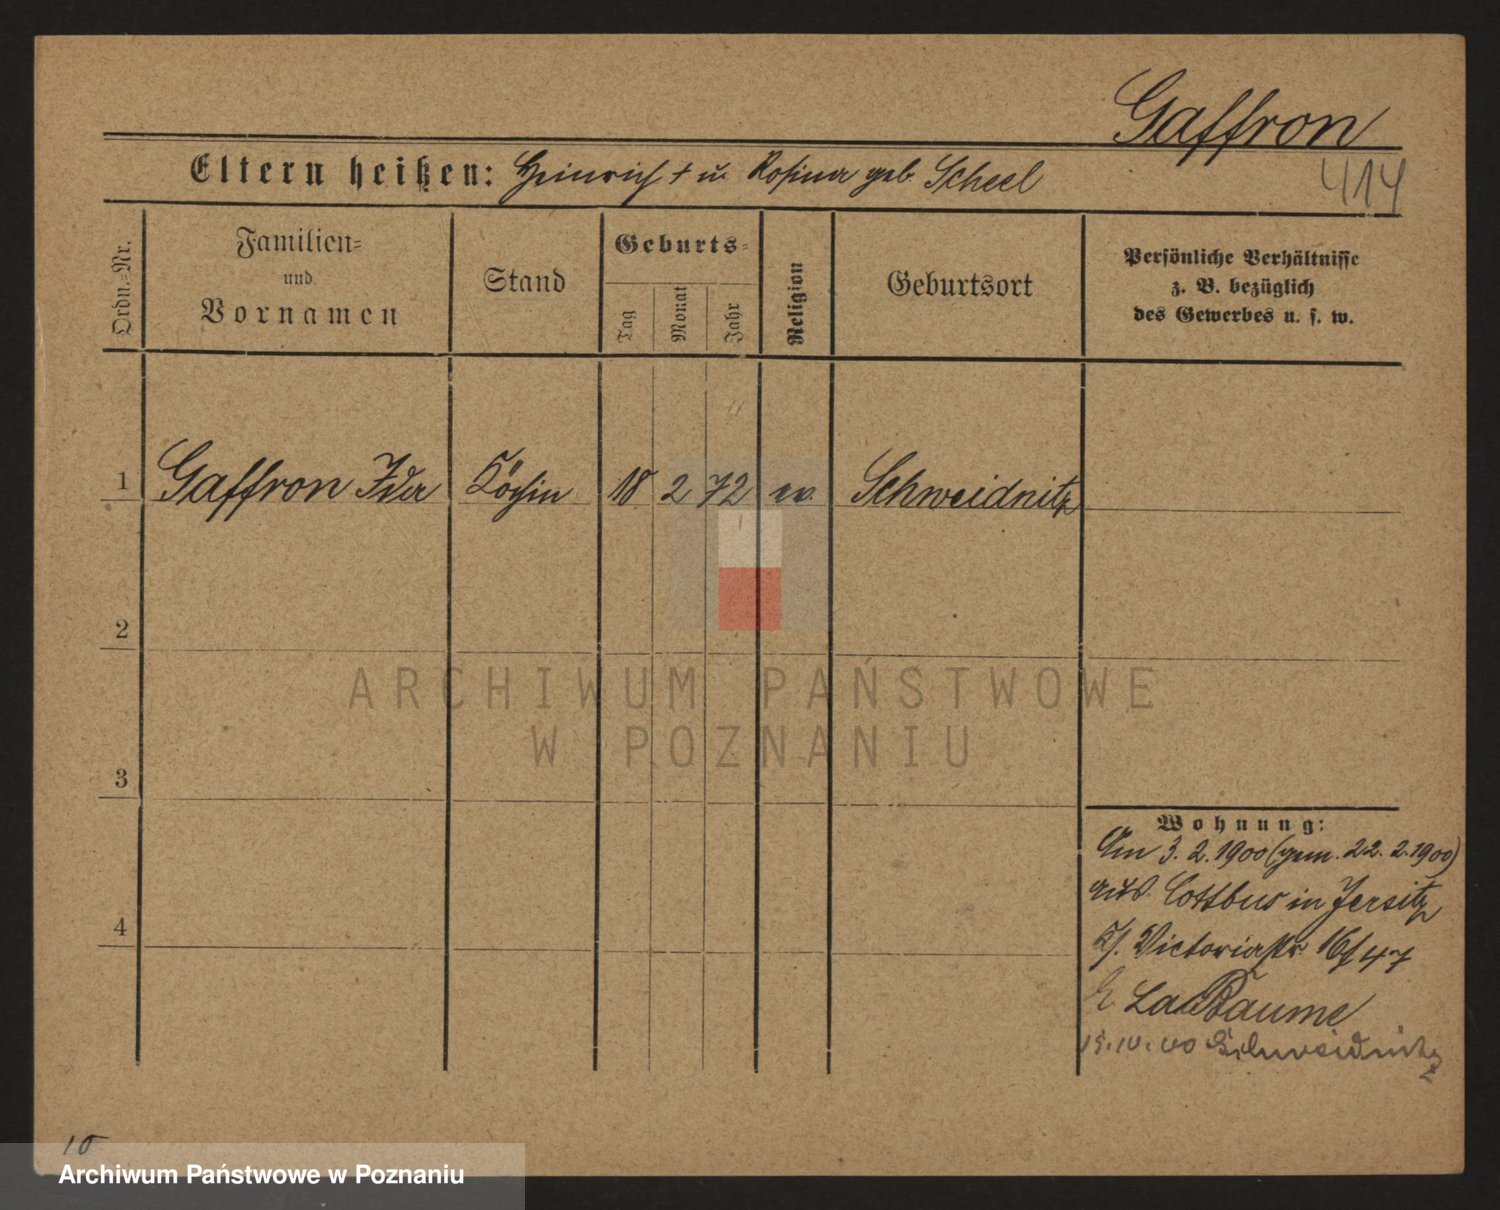 Gaffron
414
Eltern heißen: Heinrich † u. Rosina geb. Scheel
Ordn.-Nr.
Familien-
und
Vornamen
Stand
Geburts-
Tag
Monat
Jahr
Religion
Geburtsort
Persönliche Verhältnisse
z. B. bezüglich
des Gewerbes u. s. w.
1 Gaffron Ida Köchin 18 2 72 ev. Schweidnitz
2
ARCHIWUM PAŃSTWOWE
W POZNANIU
3
Wohnung:
Am 3. 2. 1900 (gem. 22. 2. 1900)
aus Cottbus in Jersitz
Victoriastr. 16
4
La Baume
Schweidnitz
10
Archiwum Państwowe w Poznaniu